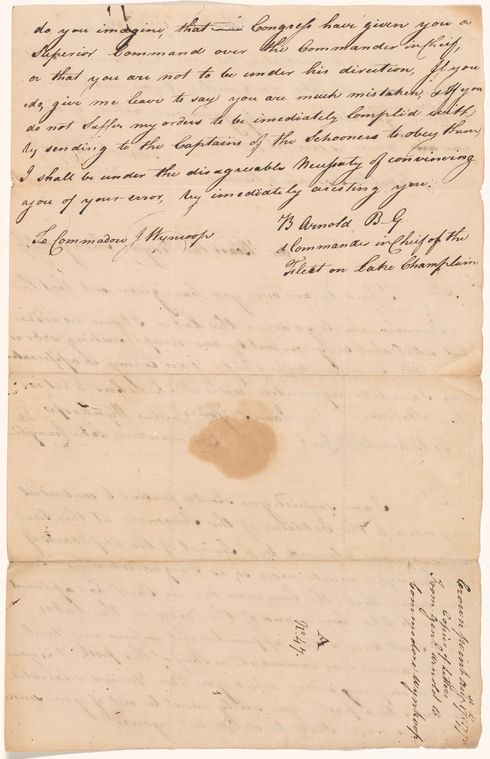 do you imagine, that Congress have given you a
Superior Command over the Commander in Cheif,
or that you are not to be under his direction, If you
do, give me leave to say you are much mistaken, & If you
do not Suffer my orders to be imediately Complid with
by sending to the Captains of the Schooners to obey them,
I shall be under the disagreeable Necessaty of convincing
you of your error, by imediately aresting you.
B Arnold B G
& Commander in Cheif of the
Fleet on Lake Champlain
To Commadore J Wyncoop
A
No. 47.
Crown point Augt 17th 1776
Copies of Letter
From Genl. Arnold to
Commodore Wynkoop